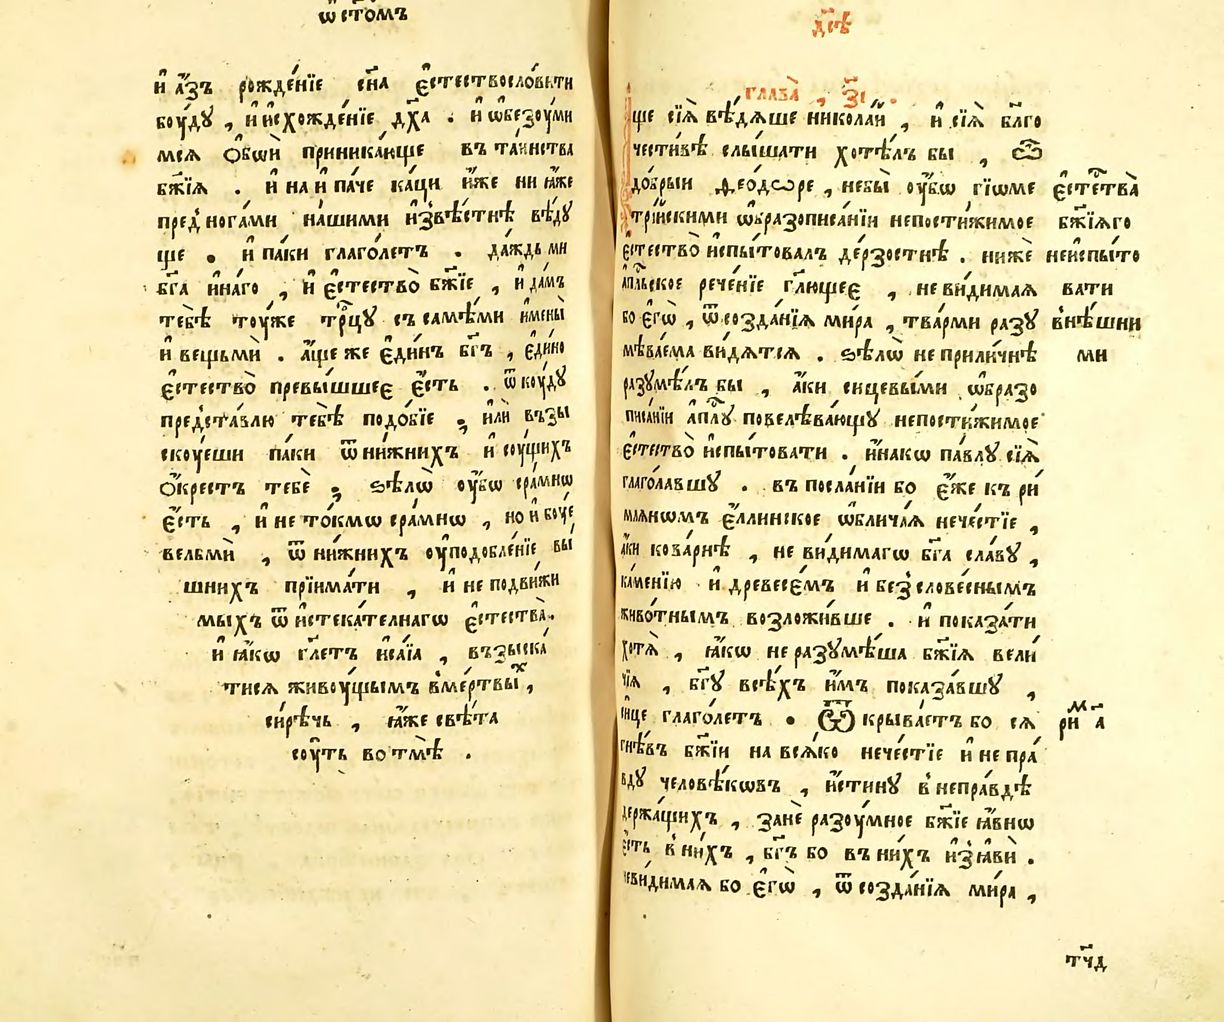 ѡ҃ стомъ
и҆ а҆́зъ рожде́нїе сн҃а є҆стествословѣ́ти
бо́уду , и҆ и҆схожде́нїе дх҃а . и҆ ѡ҆безоу́ми
мсѧ ѻ҆́бѡи приника́юще въ та́инства
бж҃їѧ . и҆ на и҆ па́че ка́ци и҆́же ни ꙗ҆́же
пред̾ нога́ми на́шими и҆звѣ́стнѣ вѣ́ду
ще . и҆ па́ки глаго́летъ . да́ждь ми
бг҃а и҆на́го , и҆ є҆стество̀ бж҃їе , и҆ да́мъ
тебѣ̀ то́уже трⷪ҇цꙋ съ самѣ́ми и҆мены̀
и҆ вещьмѝ . а҆́ще же є҆ди́нъ бг҃ъ , є҆ди́но
є҆стество̀ превы́шшее є҆́сть . ѿ ко́уду
предста́влю тебѣ̀ подо́бїе , и҆лѝ взы
ско́уеши па́ки ѿ ни́жнихъ и҆ со́ущихъ
ѻ҆́крестъ тебѐ , ѕѣлѡ̀ оу҆́бѡ сра́мнѡ
є҆́сть , и҆ не то́кмѡ сра́мнѡ , но и҆ бо́уе
вельмѝ , ѿ ни́жнихъ оу҆подобле́нїе вы́
шнихъ прїима́ти , и҆ не подви́жи
мыхъ ѿ и҆стека́телнагѡ є҆стества̀.
и҆ ꙗ҆́кѡ гл҃етъ и҆са́їа , възыска́
тисѧ живо́ущымъ в̾ме́ртвыⷯ ,
си́рѣчь , ꙗ҆́же свѣ́та
со́уть во тмѣ̀ .
дс҃ѣ
глава̀ , з҃і .
А҆́ще сїѧ̀ вѣ́дѧше никола́й , и҆ сїѧ̀ бл҃го
чести́вѣ слы́шати хотѣ́лъ бы , Ѿ
до́брыи ѳео́дѡре , не бы̀ оу҆́бѡ гїѡме
трі́йскими ѡ҆бразописа́нїи непости́жимое
є҆стество̀ и҆спы́товалъ де́рзостнѣ . нижѐ
а҆пⷭ҇льское рече́нїе гл҃ющее , не ви́димаѧ
бо є҆гѡ̀ , ѿ созда́нїѧ ми́ра , тва́рми разꙋ
мѣва́ема ви́дѧтсѧ . ѕѣлѡ̀ не прили́чнѣ
разꙋмѣ́лъ бы , а҆́ки сицевы́ми ѡ҆́бразо
писа́нїи а҆пⷭ҇лꙋ повелѣва́ющꙋ непости́жимое
є҆стество̀ и҆спы́товати . и҆на́кѡ па́влꙋ сїѧ̀
глаго́лавшꙋ . въ посла́нїи бо є҆́же къ ри́
млѧнѡмъ є҆́ллинское ѡ҆блича́ѧ нече́стїе ,
а҆́ки кова́рнѣ , не ви́димагѡ бг҃а сла́вꙋ ,
ка́менїю и҆ древесе́мъ и҆ без̾слове́снымъ
живо́тнымъ возложи́вше . и҆ показа́ти
хотѧ̀ , ꙗ҆́кѡ не разꙋмѣ́ша бж҃їѧ вели́
чїѧ , бг҃ꙋ всѣ́хъ и҆́мъ показа́вшꙋ ,
си́це глаго́летъ . Ѿкрыва́етъ бо сѧ
гнѣ́въ бж҃їи на всѧ́ко нече́стїе и҆ не пра́
вдꙋ человѣ́кѡвъ , и҆́стинꙋ в̾ непра́вдѣ
держа́щихъ , занѐ разо́умное бж҃їе ꙗ҆́внѡ
є҆́сть в̾ ни́хъ , бг҃ъ бо въ ни́хъ и҆з̾ꙗвѝ .
неви́димаѧ бо є҆гѡ̀ , ѿ созда́нїѧ ми́ра ,
є҆стества̀
бж҃їѧго
неи҆спы́то
вати
внѣ́шни
ми
риⷨ а҃
тч҃д